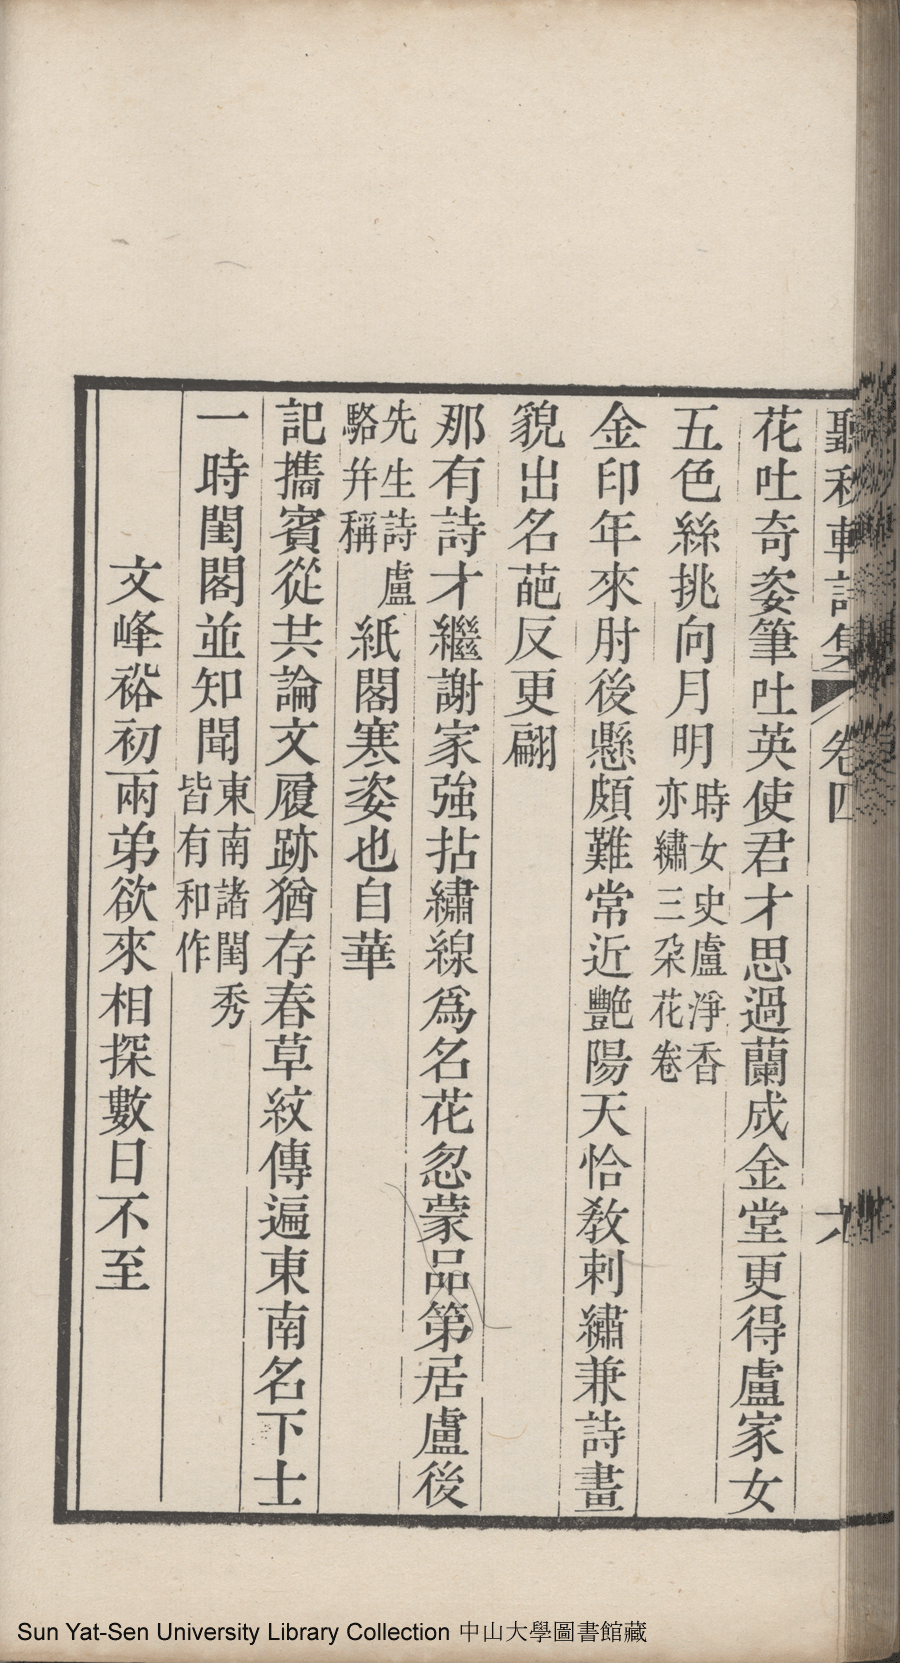 聽秋軒詩集 卷四 六
花吐奇姿筆吐英使君才思過蘭成金堂更得盧家女
五色絲挑向月明時女史盧淨香亦繡三朶花卷
金印年來肘後懸頗難常近艷陽天恰敎刺繡兼詩畫
貌出名葩反更翩
那有詩才繼謝家強拈繡線爲名花忽蒙品第居盧後
先生詩盧駱幷稱紙閣寒姿也自華
記攜賓從共論文履跡猶存春草紋傳遍東南名下士
一時閨閣並知聞東南諸閨秀皆有和作
文峰裕初兩弟欲來相探數日不至
Sun Yat-Sen University Library Collection 中山大學圖書館藏